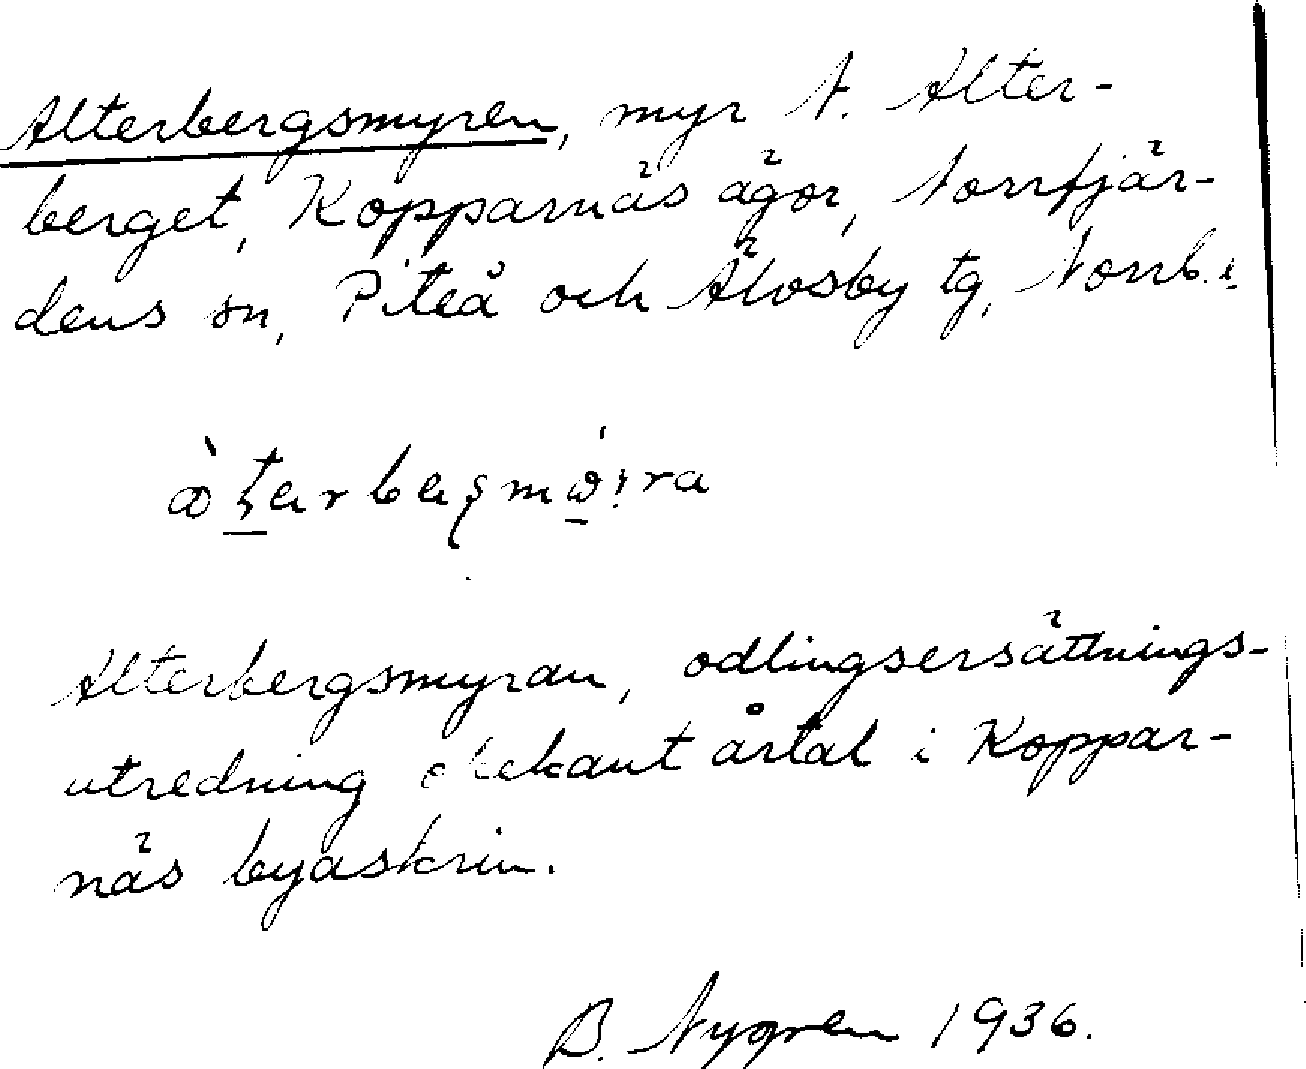 Alterbergsmyren, myr N. Alter-
berget, Kopparnäs ägor, Norrfjär-
dens sn, Piteå och Älvsby tg, Norrb.
Alterbergsmyran, odlingsersättnings-
utredning obekant årtal i Koppar-
näs byaskrin.
B. Nygren 1936.